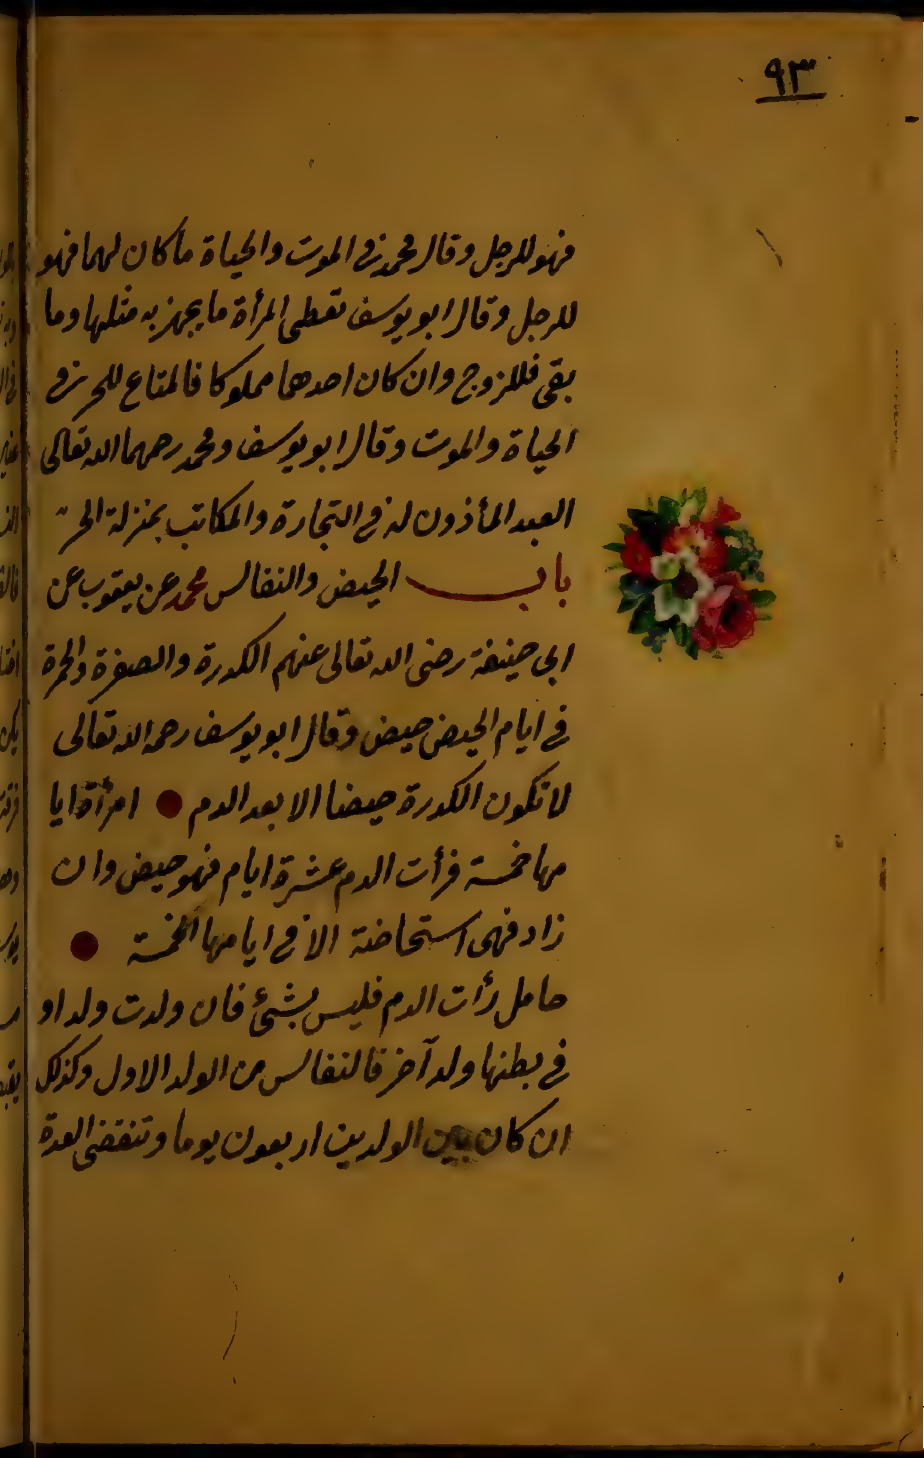 ٩٣
فهو للرجل وقال محمد في الموت والحياة ما كان لهما فهو
للرجل وقال ابو يوسف تعطى المرأة ما يجهز به مثلها وما
بقى فللزوج وان كان احدهما مملوكا فالمتاع للحر في
الحياة والموت وقال ابو يوسف ومحمد رحمهما الله تعالى
العبد المأذون له في التجارة والمكاتب بمنزلة الحر
باب الحيض والنفاس محمد عن يعقوب عن
ابى حنيفة رضى الله تعالى عنهم الكدرة والصفرة والحمرة
في ايام الحيض حيض وقال ابو يوسف رحمه الله تعالى
لا تكون الكدرة حيضا الا بعد الدم امرأة ايا
مها خمسة فرأت الدم عشرة ايام فهو حيض وان
زاد فهى استحاضة الا في ايامها الخمسة
حامل رأت الدم فليس بشئ فان ولدت ولدا و
في بطنها ولد آخر فالنفاس من الولد الاول وكذلك
ان كان بين الولدين اربعون يوما وتنقضى العدة